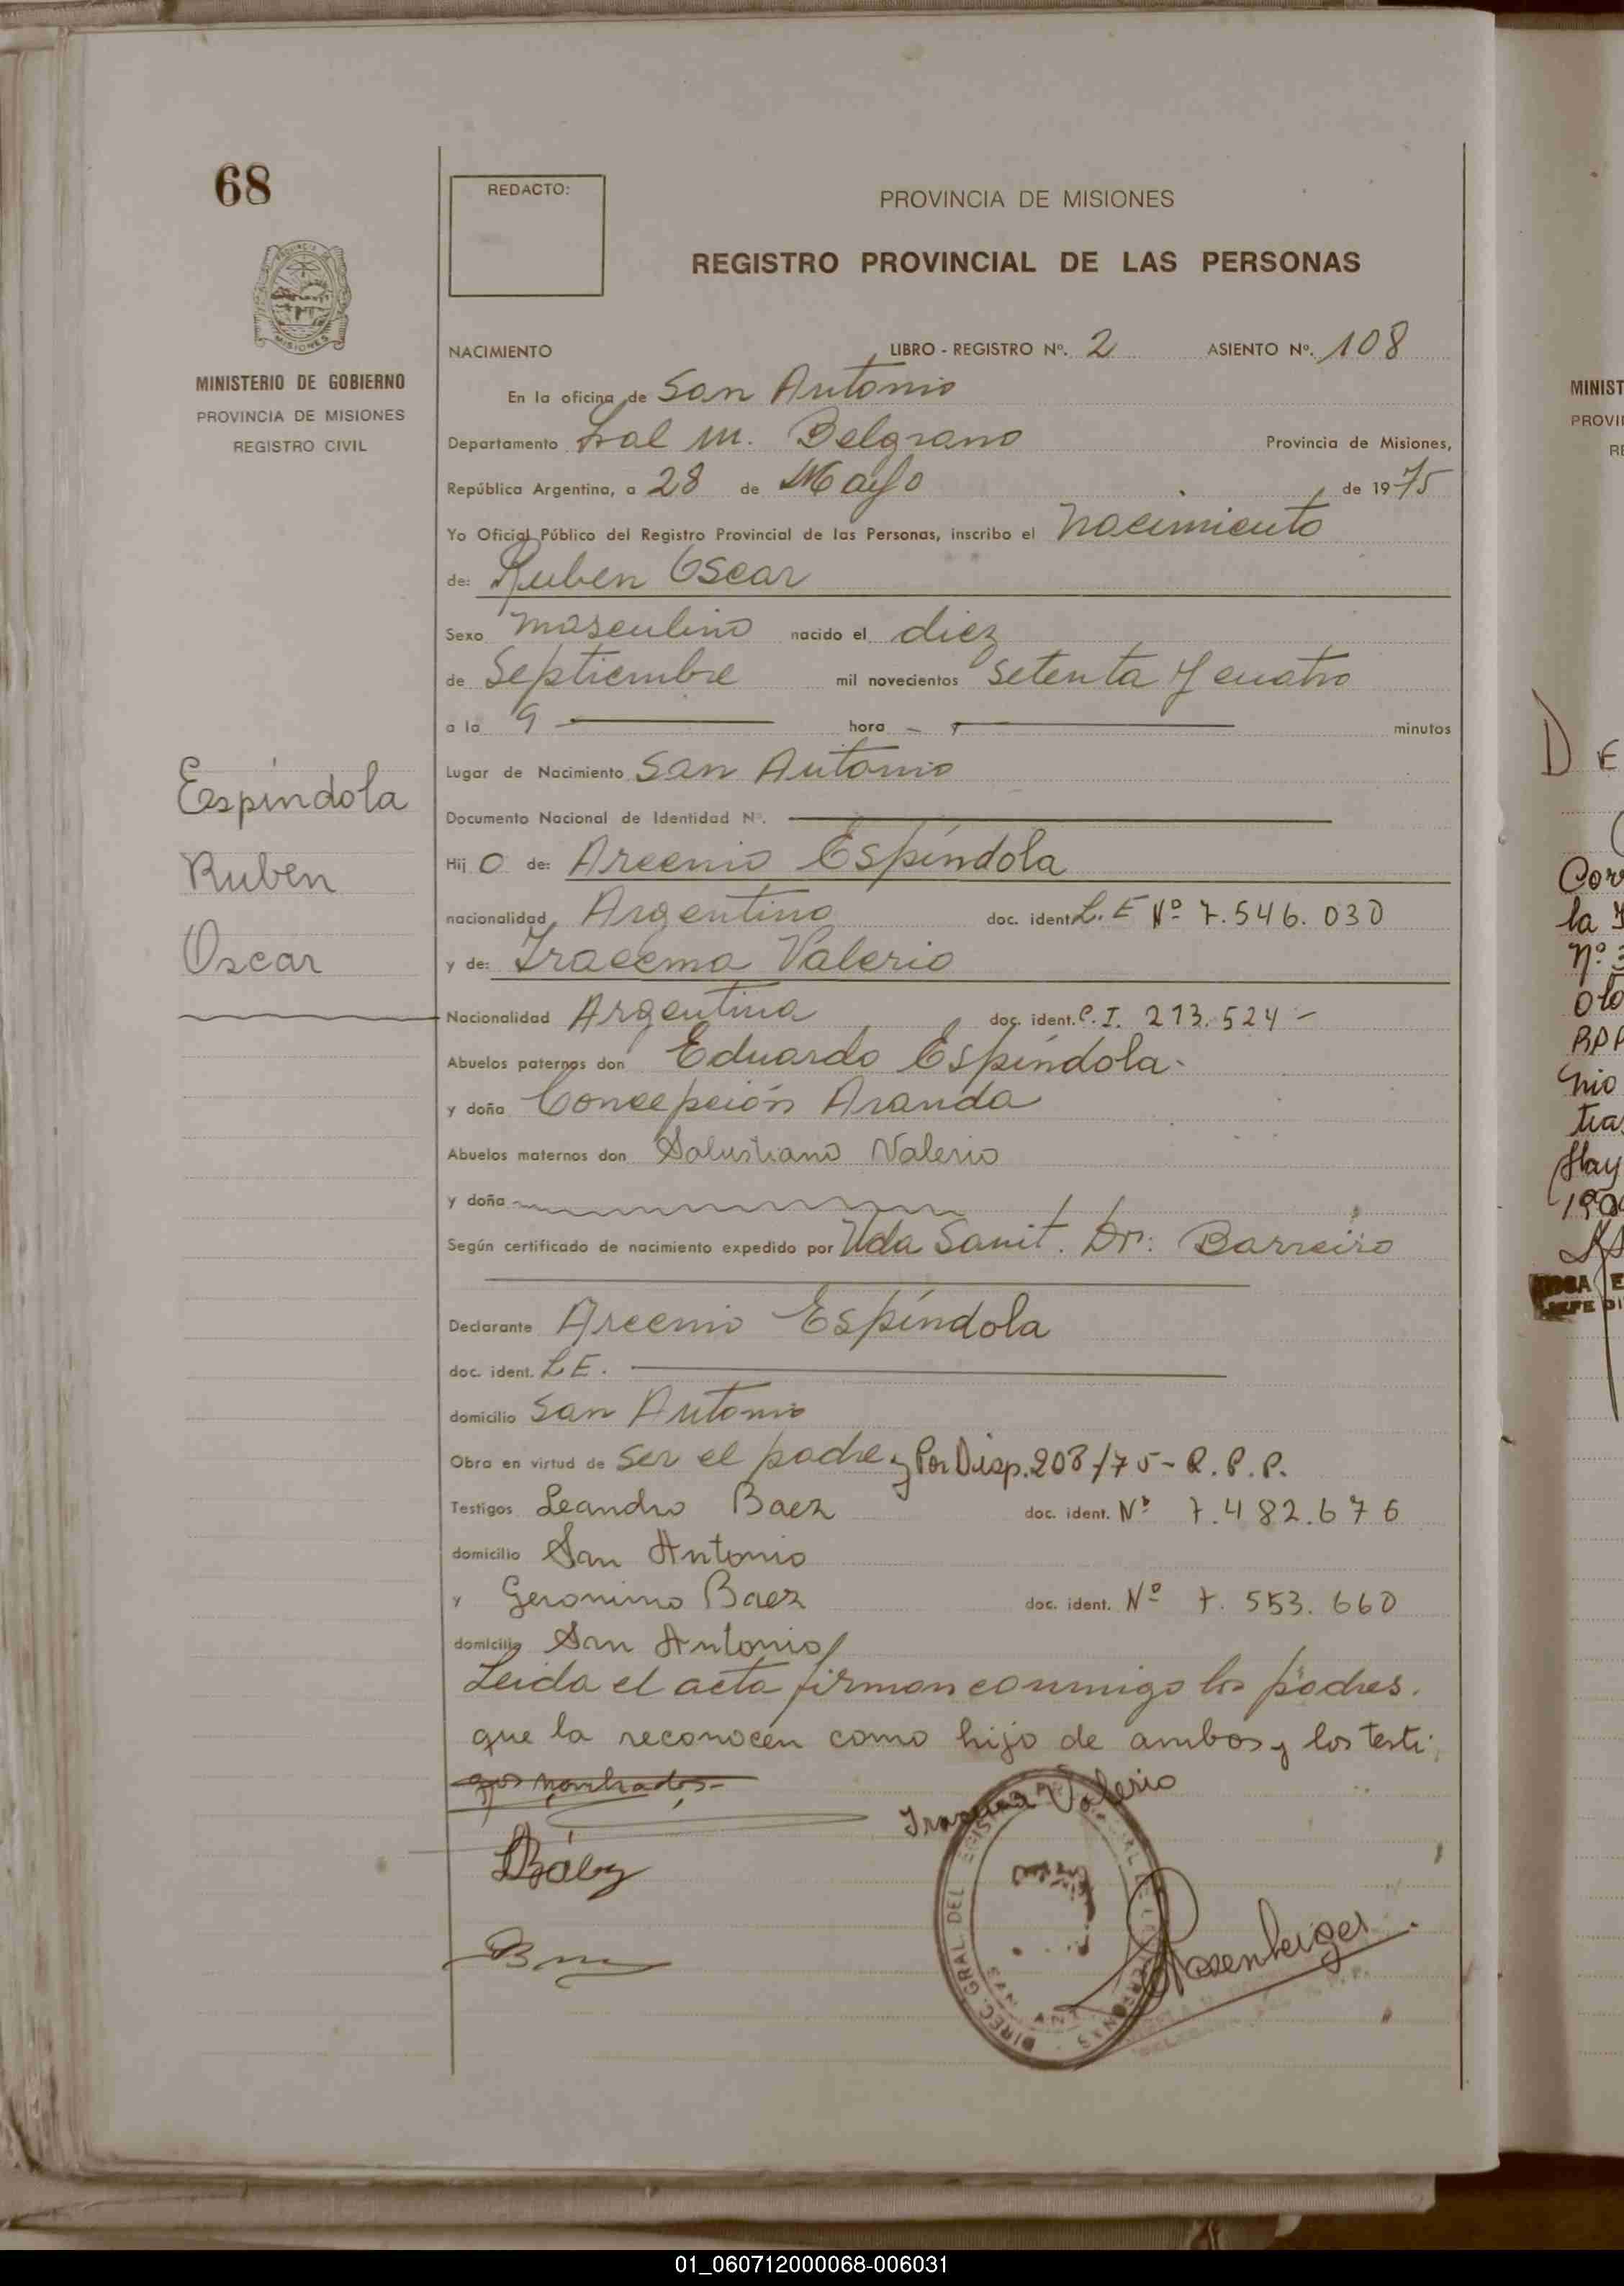 68
REDACTO:
PROVINCIA DE MISIONES
REGISTRO PROVINCIAL DE LAS PERSONAS
MISIONES
MINISTERIO DE GOBIERNO
PROVINCIA DE MISIONES
REGISTRO CIVIL
NACIMIENTO LIBRO - REGISTRO Nº. 2 ASIENTO Nº. 108
En la oficina de San Antonio
Departamento Gral M. Belgrano Provincia de Misiones,
República Argentina, a 28 de Mayo de 1975
Yo Oficial Público del Registro Provincial de las Personas, inscribo el Nacimiento
de: Ruben Oscar
Sexo masculino nacido el diez
de Septiembre mil novecientos setenta y cuatro
a la 9 hora minutos
Lugar de Nacimiento San Antonio
Documento Nacional de Identidad Nº.
Espíndola
Ruben
Oscar
Hij o de: Arcenio Espíndola
nacionalidad Argentino doc. ident. L.E Nº 7.546.030
y de: Iracema Valerio
Nacionalidad Argentina doc. ident. C.I. 213.524 -
Abuelos paternos don Eduardo Espíndola-
y doña Concepción Aranda
Abuelos maternos don Salustiano Valerio
y doña
Según certificado de nacimiento expedido por Uda Sanit. Dr: Barreiro
Declarante Arcenio Espíndola
doc. ident. L E.
domicilio San Antonio
Obra en virtud de ser el padre y Por Disp. 208/75 - R. P. P.
Testigos Leandro Baez doc. ident. Nº 7.482.676
domicilio San Antonio
y Geronimo Baez doc. ident. Nº 7.553.660
domicilio San Antonio
Leida el acta firman conmigo los padres.
que la reconocen como hijo de ambos y los testi
gos nombrados-
Iracema Valerio
LBáez
DIREC. GRAL. DEL
Rosenberger
MINIST
PROVI
RE
D E
Cor
la
nº 3
RPP
nio
tra
Hay
JEFE DI
01_060712000068-006031